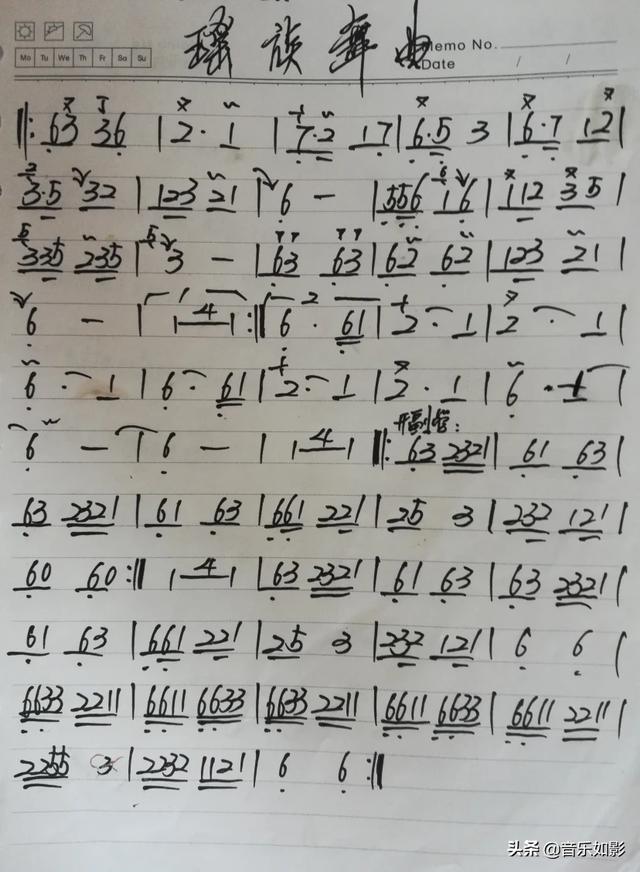 瑶族舞曲
Memo No.
Mo Tu We Th Fr Sa Su
Date / /
‖: 63 36 | 2· 1 | 7·2 17 | 6·5 3 | 6·7 12 |
3·5 32 | 123 21 | 6 — | 556 16 | 112 35 |
335 235 | 3 — | 63 63 | 62 62 | 123 21 |
6 — | 1 4 :‖ 2 6· 61 | 2· 1 | 2· 1 |
6· 1 | 6· 61 | 2· 1 | 2· 1 | 6· 1 |
6 — | 6 — | 4 ‖: 开副管: 63 2321 | 61 63 |
63 2321 | 61 63 | 661 221 | 25 3 | 232 121 |
60 60 :‖ 4 | 63 2321 | 61 63 | 63 2321 |
61 63 | 661 221 | 25 3 | 232 121 | 6 6 |
6633 2211 | 6611 6633 | 6633 2211 | 6611 6633 | 6611 2211 |
2255 3 | 2232 1121 | 6 6 :‖
头条 @音乐如影